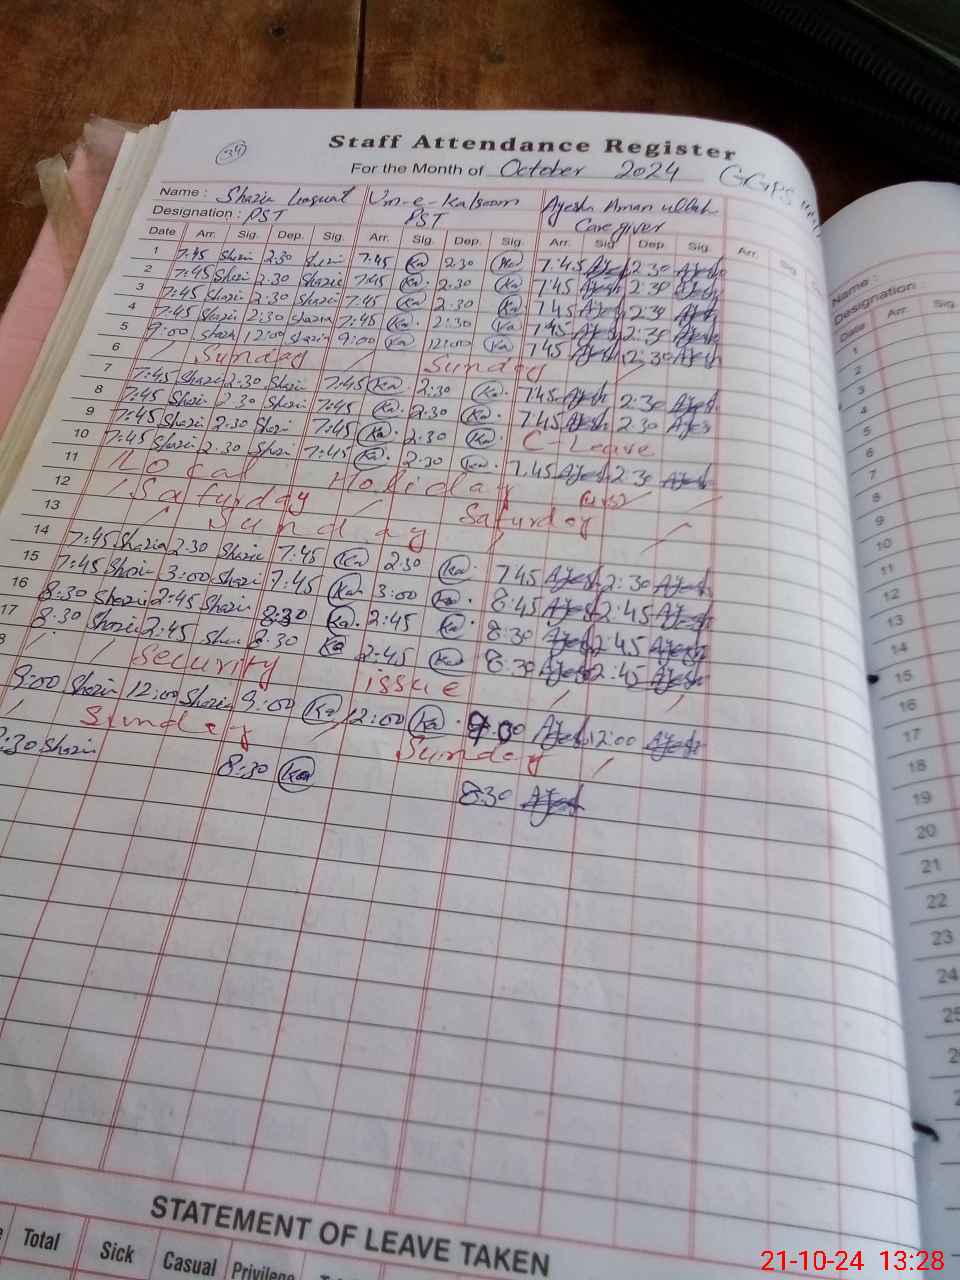 34
Staff Attendance Register
For the Month of October 2024 GGPS
Name : Shazia Um-e-Kalsoom Ayesha Aman ullah
Designation : PST PST Caregiver
Date Arr. Sig. Dep. Sig. Arr. Sig. Dep. Sig. Arr. Sig. Dep. Sig. Arr. Sig
1 7:45 Shazi 2:30 Shazi 7:45 Ka 2:30 Ka 7:45 Ayesh 2:30 Ayesh
2 7:45 Shazi 2:30 Shazi 7:45 Ka 2:30 Ka 7:45 Ayesh 2:30 Ayesh
3 7:45 Shazi 2:30 Shazi 7:45 Ka 2:30 Ka 7:45 Ayesh 2:30 Ayesh
4 7:45 Shazi 2:30 Shazia 7:45 Ka 2:30 Ka 7:45 Ayesh 2:30 Ayesh
5 9:00 Shazi 12:00 Shazi 9:00 Ka 12:00 Ka 7:45 Ayesh 2:30 Ayesh
6 Sunday Sunday
7 7:45 Shazi 2:30 Shazi 7:45 Ka 2:30 Ka 7:45 Ayesh 2:30 Ayesh
8 7:45 Shazi 2:30 Shazi 7:45 Ka 2:30 Ka 7:45 Ayesh 2:30 Ayesh
9 7:45 Shazi 2:30 Shazi 7:45 Ka 2:30 Ka C-Leave
10 7:45 Shazi 2:30 Shazi 7:45 Ka 2:30 Ka 7:45 Ayesh 2:30 Ayesh
11 Local Holiday
12 Saturday Saturday
13 Sunday
14 7:45 Shazia 2:30 Shazia 7:45 Ka 2:30 Ka 7:45 Ayesh 2:30 Ayesh
15 7:45 Shazi 3:00 Shazi 7:45 Ka 3:00 Ka 8:45 Ayesh 2:45 Ayesh
16 8:30 Shazi 2:45 Shazi 8:30 Ka 2:45 Ka 8:30 Ayesh 2:45 Ayesh
17 8:30 Shazi 2:45 Shazi 8:30 Ka 2:45 Ka 8:30 Ayesh 2:45 Ayesh
8 Security issue
9:00 Shazi 12:00 Shazi 9:00 Ka 12:00 Ka 9:00 Ayesh 12:00 Ayesh
Sunday Sunday
:30 Shazi 8:30 Ka 8:30 Ayesh
STATEMENT OF LEAVE TAKEN
Total Sick Casual Privilege
Name :
Designation :
Date Arr. Sig.
1
2
3
4
5
6
7
8
9
10
11
12
13
14
15
16
17
18
19
20
21
22
23
24
25
21-10-24 13:28